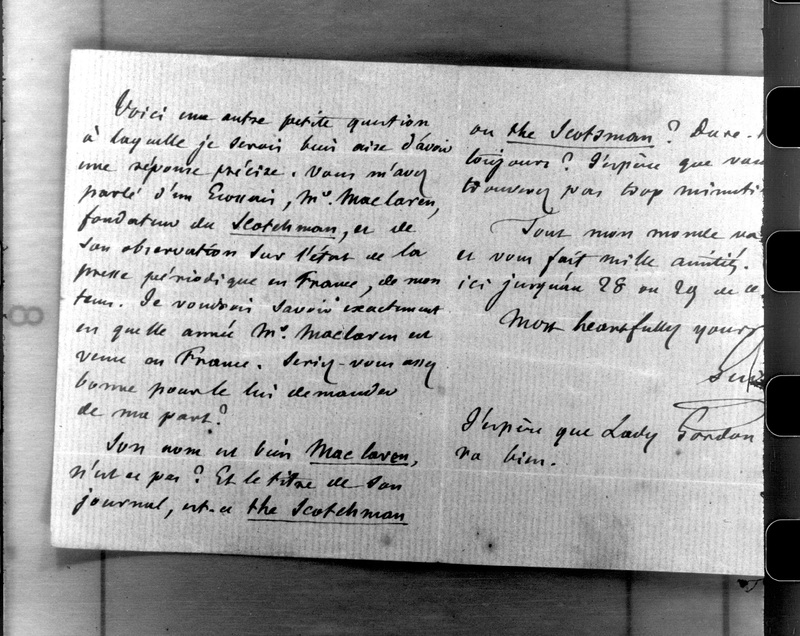 Voici une autre petite question
à laquelle je serois bien aise d'avoir
une réponse précise. Vous m'avez
parlé d'un Ecossais, Mr. Maclaren,
fondateur du Scotchman, et de
son observation sur l'état de la
presse périodique en France, de mon
tems. Je voudrois savoir exactement
en quelle année Mr. Maclaren est
venu en France. Seriez-vous assez
bonne pour le lui demander
de ma part?
Son nom est bien Maclaren,
n'est ce pas? Et le titre de son
journal, est-ce the Scotchman
ou the Scotsman? Dure-t
toujours? J'espère que vou
trouverez pas trop minuti
Tout mon monde va
et vous fait mille amitiés.
ici jusqu'au 28 ou 29 de ce
Most heartfully yours
J'espère que Lady Gordon
va bien.
8